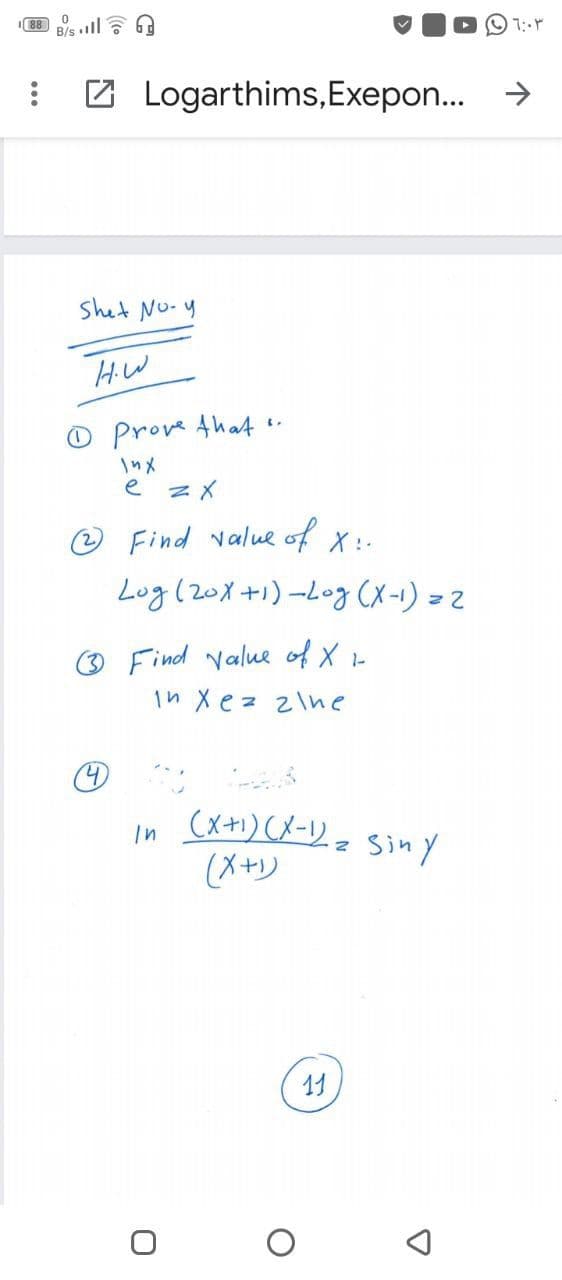 88 0 B/s ٦:٠٣
Logarthims,Exepon...
Shet No- y
H.W
① Prove that :.
e^lnx = x
② Find value of x :.
Log (20x +1) -Log (x-1) = 2
③ Find value of x :-
ln x e = 2lne
④
ln (x+1)(x-1) = sin y
(x+1)
11